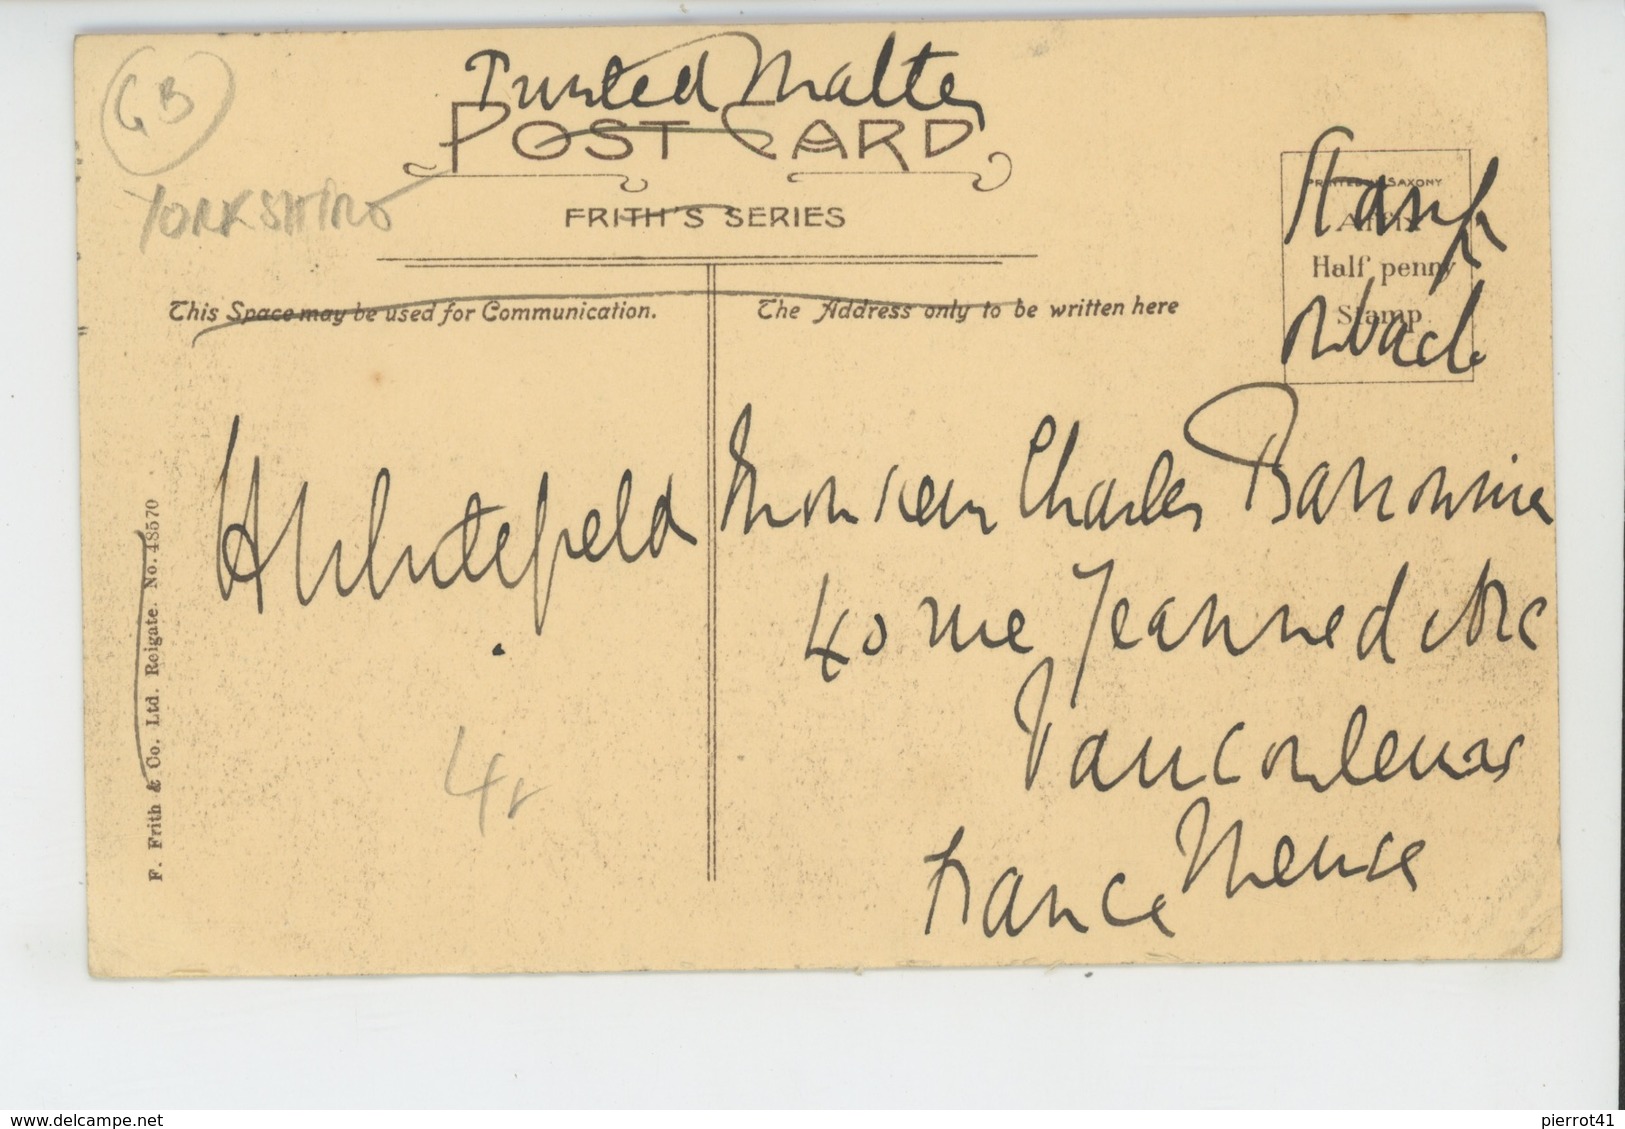 GB
YORKSHIRE
Printed Matter
POST CARD
FRITH'S SERIES
PRINTED IN SAXONY
Affix
Half penny
Stamp
Stamp
on back
This Space may be used for Communication.
The Address only to be written here
H Whitefield
Monsieur Charles
40 rue Jeanne d Arc
Vaucouleurs
Meuse
France
4
F. Frith & Co. Ltd. Reigate. No. 48570
www.delcampe.net
pierrot41